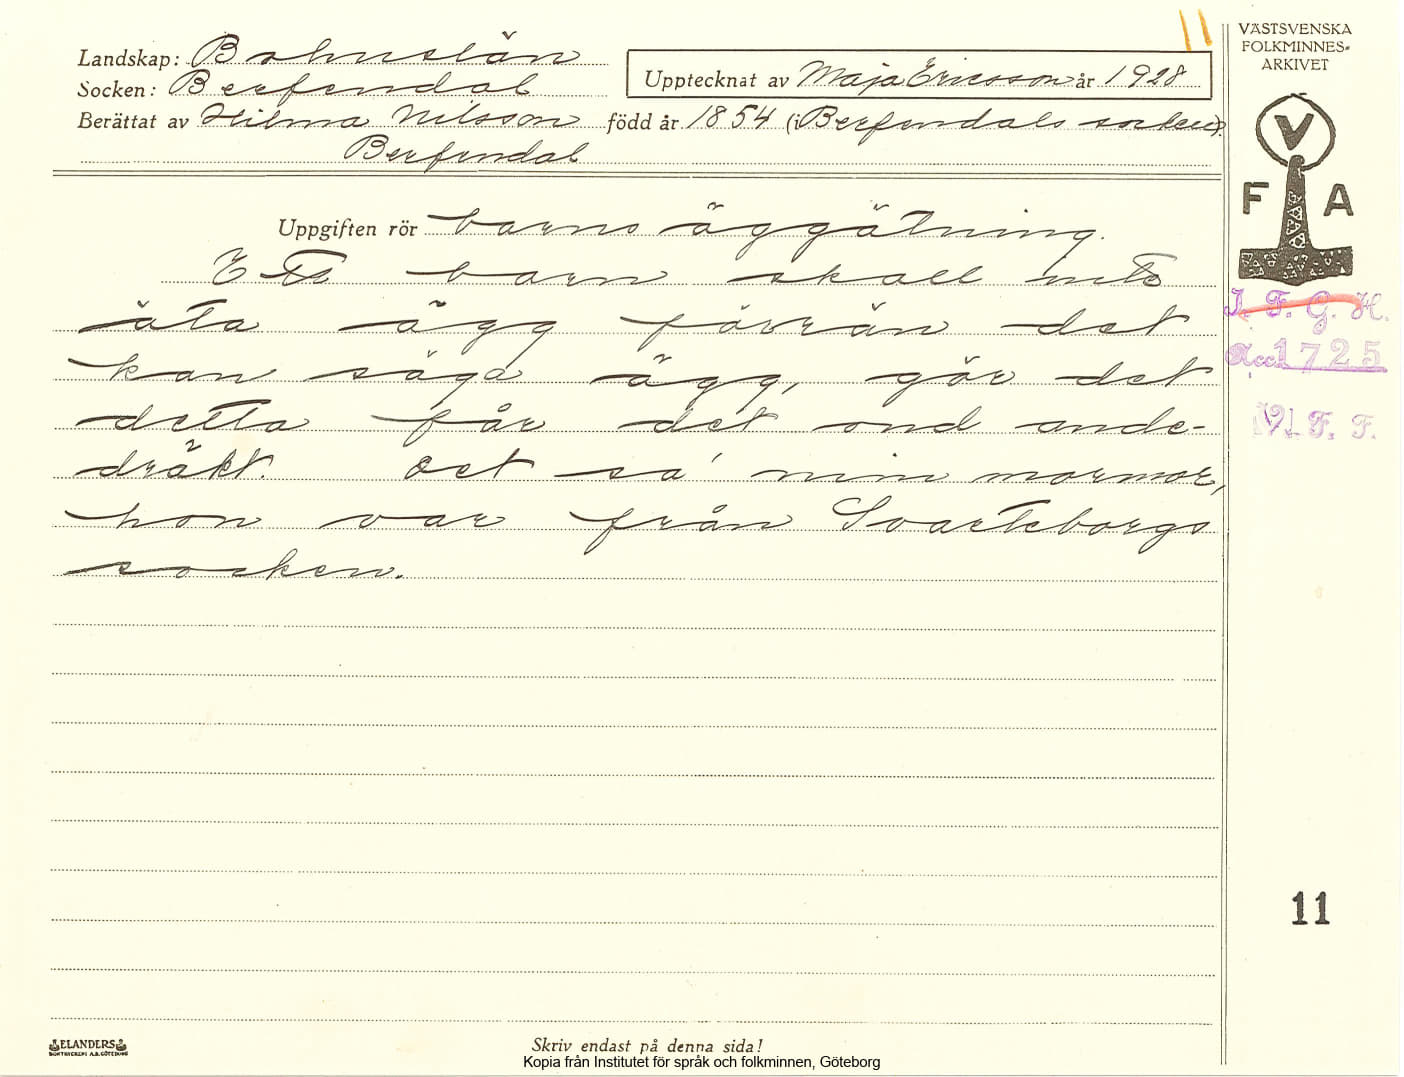 11
VÄSTSVENSKA
FOLKMINNES-
ARKIVET
Landskap: Bohuslän
Socken: Berfendal
Upptecknat av Maja Ericsson år 1928
Berättat av Hilma Nilsson född år 1854 (i Berfendals socken).
Berfendal
V
F A
Uppgiften rör barns äggätning.
Ett barn skall inte
äta ägg förrän det
kan säga ägg, gör det
detta får det ond ande-
dräkt. Det sa' min mormor,
hon var från Svarteborgs
socken.
I. F. G. H.
Acc. 1725
V. F. F.
11
ELANDERS
BOKTRYCKERI A.B. GÖTEBORG
Skriv endast på denna sida!
Kopia från Institutet för språk och folkminnen, Göteborg